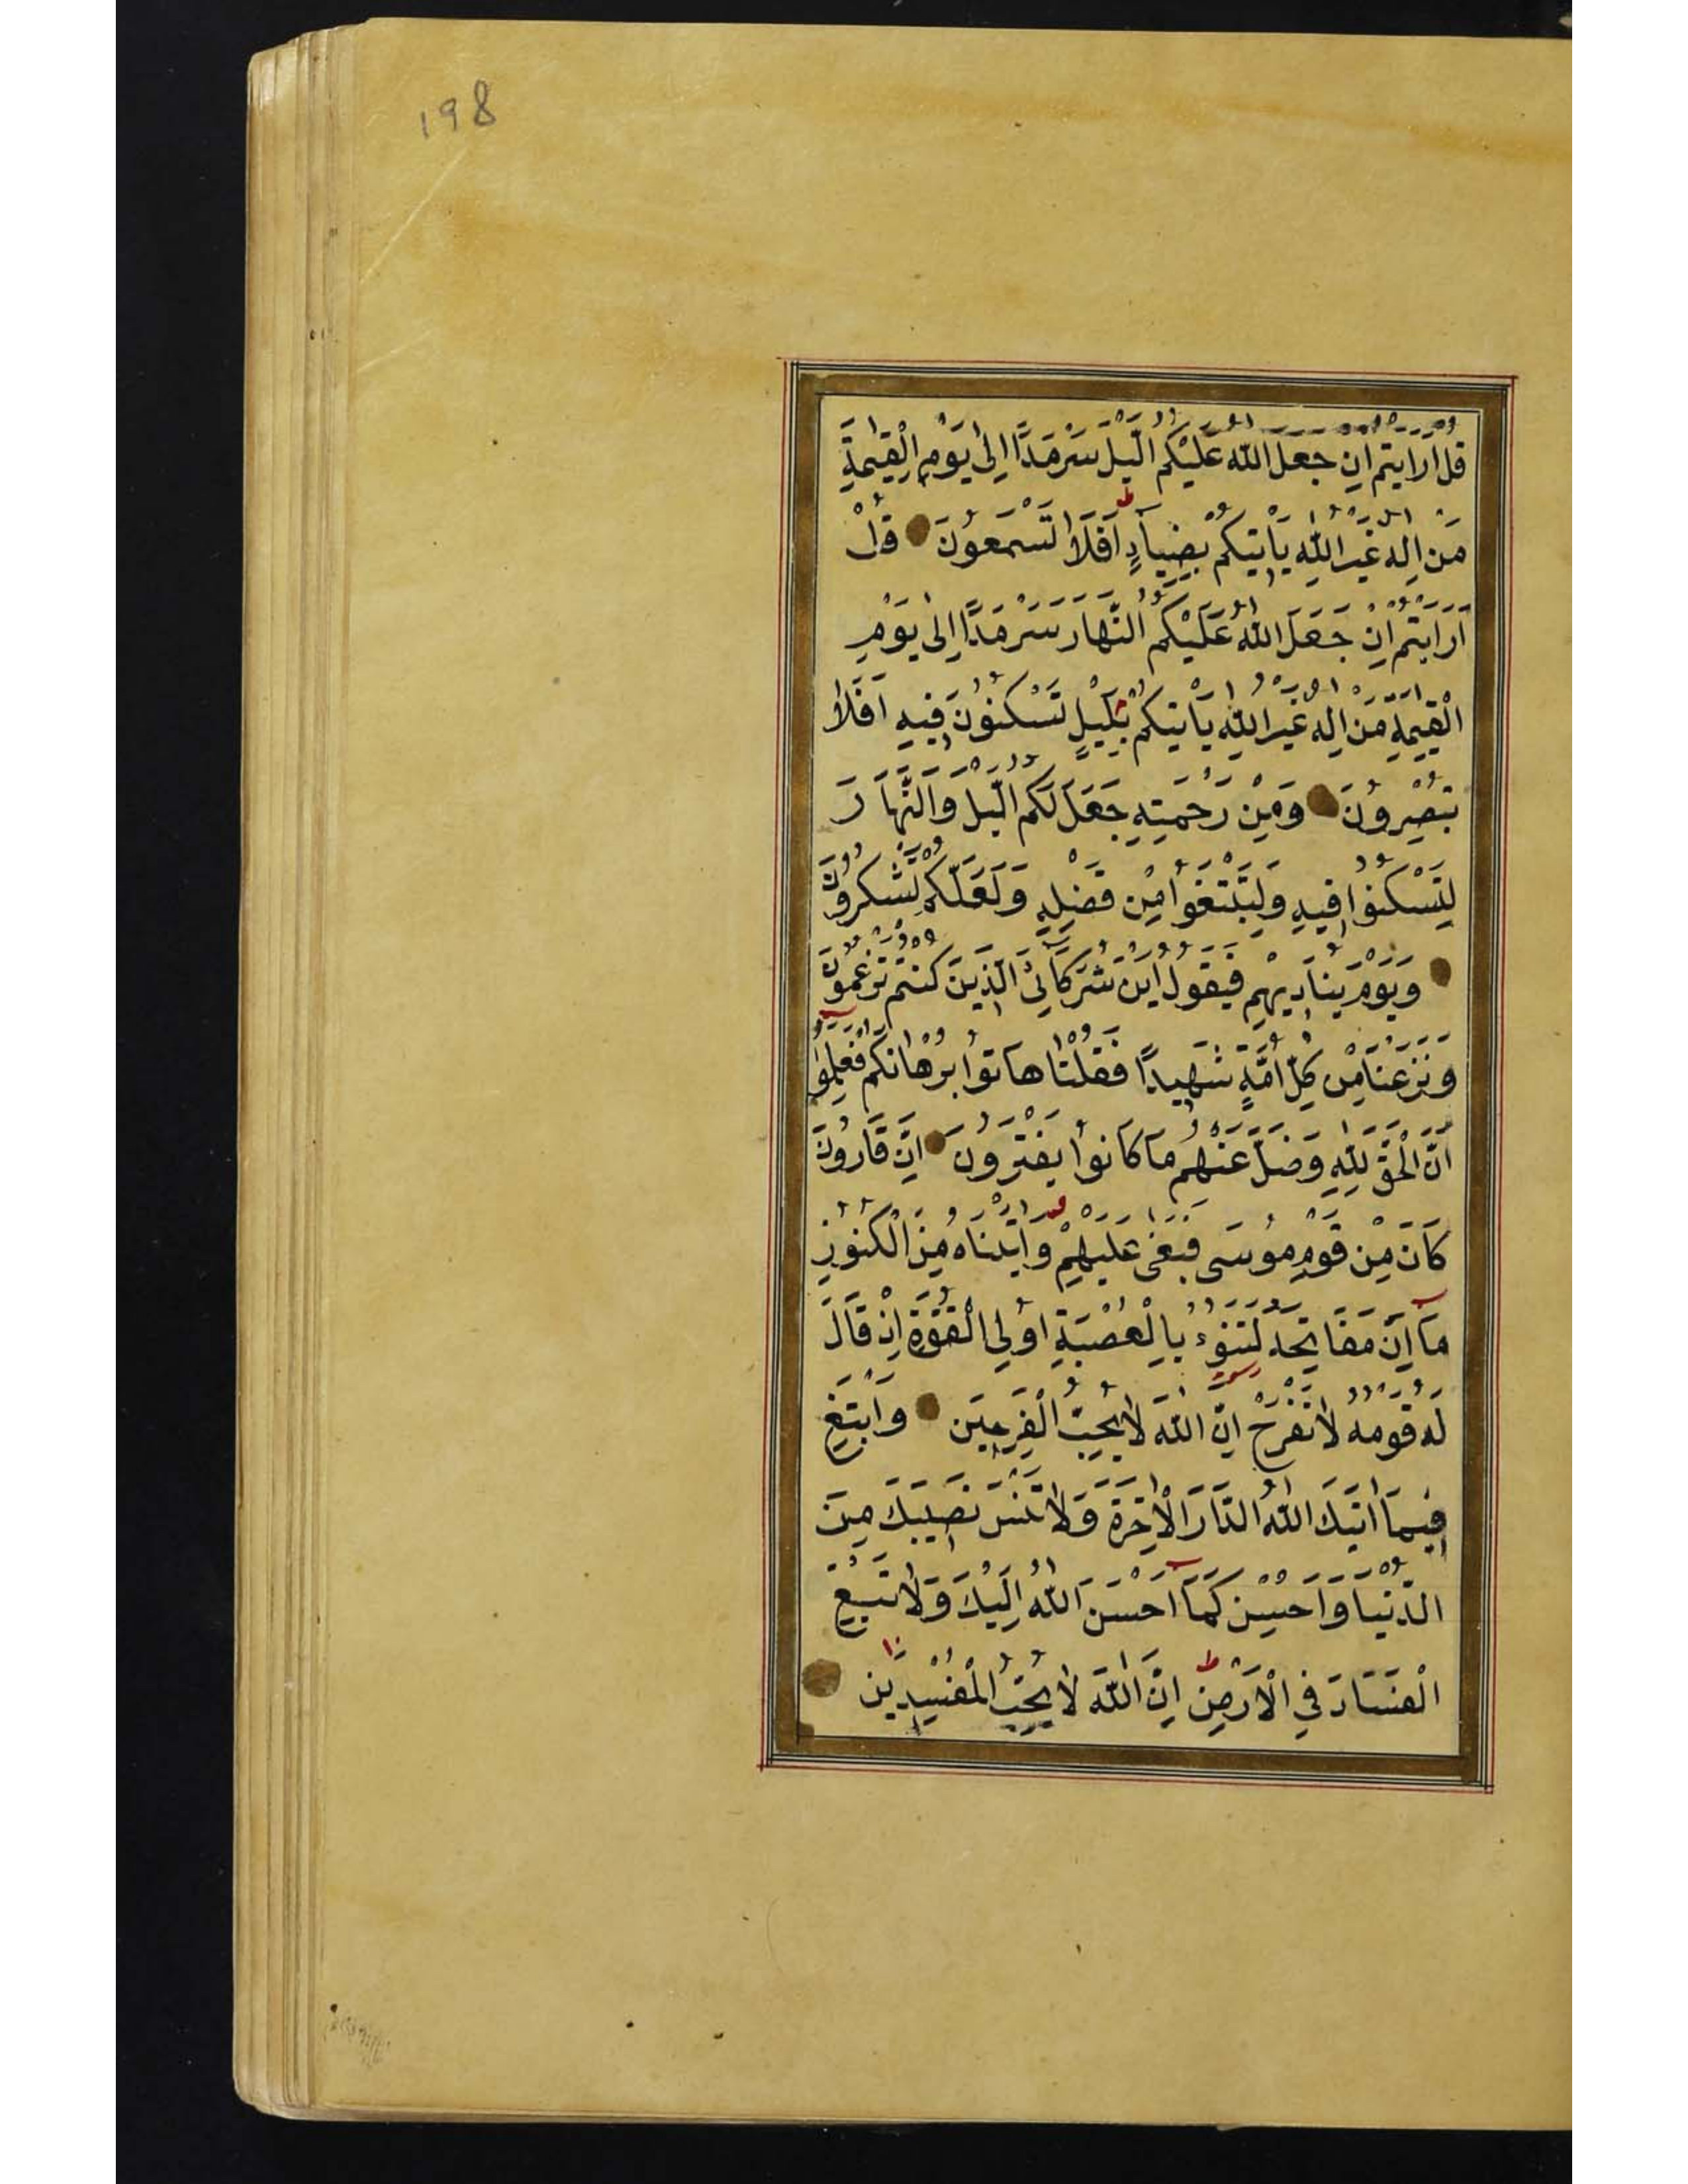 198
قُلْ اَرَاَيْتُمْ اِنْ جَعَلَ اللّٰهُ عَلَيْكُمُ الَّيْلَ سَرْمَدًا اِلٰى يَوْمِ الْقِيٰمَةِ
مَنْ اِلٰهٌ غَيْرُ اللّٰهِ يَأْتِيكُمْ بِضِيَآءٍ ط اَفَلَا تَسْمَعُونَ قُلْ
اَرَاَيْتُمْ اِنْ جَعَلَ اللّٰهُ عَلَيْكُمُ النَّهَارَ سَرْمَدًا اِلٰى يَوْمِ
الْقِيٰمَةِ مَنْ اِلٰهٌ غَيْرُ اللّٰهِ يَأْتِيكُمْ بِلَيْلٍ تَسْكُنُونَ فِيهِ اَفَلَا
تُبْصِرُونَ وَمِنْ رَحْمَتِهِ جَعَلَ لَكُمُ الَّيْلَ وَالنَّهَارَ
لِتَسْكُنُوا فِيهِ وَلِتَبْتَغُوا مِنْ فَضْلِهِ وَلَعَلَّكُمْ تَشْكُرُونَ
وَيَوْمَ يُنَادِيهِمْ فَيَقُولُ اَيْنَ شُرَكَآئِىَ الَّذِينَ كُنْتُمْ تَزْعُمُونَ
وَنَزَعْنَا مِنْ كُلِّ اُمَّةٍ شَهِيدًا فَقُلْنَا هَاتُوا بُرْهَانَكُمْ فَعَلِمُوا
اَنَّ الْحَقَّ لِلّٰهِ وَضَلَّ عَنْهُمْ مَا كَانُوا يَفْتَرُونَ اِنَّ قَارُونَ
كَانَ مِنْ قَوْمِ مُوسَى فَبَغٰى عَلَيْهِمْ وَاٰتَيْنَاهُ مِنَ الْكُنُوزِ
مَآ اِنَّ مَفَاتِحَهُ لَتَنُوءُ بِالْعُصْبَةِ اُولِى الْقُوَّةِ اِذْ قَالَ
لَهُ قَوْمُهُ لَا تَفْرَحْ اِنَّ اللّٰهَ لَا يُحِبُّ الْفَرِحِينَ وَابْتَغِ
فِيمَآ اٰتٰيكَ اللّٰهُ الدَّارَ الْاٰخِرَةَ وَلَا تَنْسَ نَصِيبَكَ مِنَ
الدُّنْيَا وَاَحْسِنْ كَمَآ اَحْسَنَ اللّٰهُ اِلَيْكَ وَلَا تَبْغِ
الْفَسَادَ فِى الْاَرْضِ ط اِنَّ اللّٰهَ لَا يُحِبُّ الْمُفْسِدِينَ